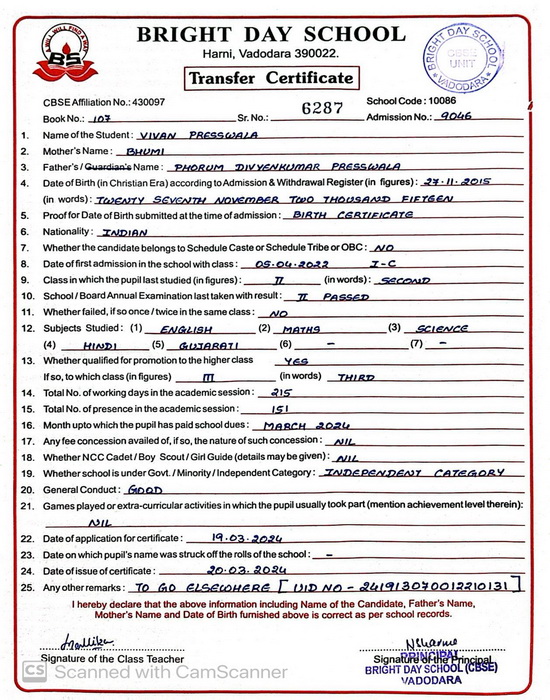 A WILL WILL FIND A WAY
BS
BRIGHT DAY SCHOOL
Harni, Vadodara 390022.
Transfer Certificate
BRIGHT DAY SCHOOL
CBSE
UNIT
VADODARA
CBSE Affiliation No.: 430097
6287
School Code : 10086
Book No.: 107
Sr. No.:
Admission No.: 9046
1. Name of the Student : VIVAN PRESSWALA
2. Mother's Name : BHUMI
3. Father's / Guardian's Name : PHORUM DIVYENKUMAR PRESSWALA
4. Date of Birth (in Christian Era) according to Admission & Withdrawal Register (in figures) : 27.11.2015
(in words) : TWENTY SEVENTH NOVEMBER TWO THOUSAND FIFTEEN
5. Proof for Date of Birth submitted at the time of admission : BIRTH CERTIFICATE
6. Nationality : INDIAN
7. Whether the candidate belongs to Schedule Caste or Schedule Tribe or OBC : NO
8. Date of first admission in the school with class : 05.04.2022 I-C
9. Class in which the pupil last studied (in figures) : II (in words) : SECOND
10. School / Board Annual Examination last taken with result : II PASSED
11. Whether failed, if so once / twice in the same class : NO
12. Subjects Studied : (1) ENGLISH (2) MATHS (3) SCIENCE
(4) HINDI (5) GUJARATI (6) - (7) -
13. Whether qualified for promotion to the higher class YES
If so, to which class (in figures) III (in words) THIRD
14. Total No. of working days in the academic session : 215
15. Total No. of presence in the academic session : 151
16. Month upto which the pupil has paid school dues : MARCH 2024
17. Any fee concession availed of, if so, the nature of such concession : NIL
18. Whether NCC Cadet / Boy Scout / Girl Guide (details may be given) : NIL
19. Whether school is under Govt. / Minority / Independent Category : INDEPENDENT CATEGORY
20. General Conduct : GOOD
21. Games played or extra-curricular activities in which the pupil usually took part (mention achievement level therein) :
NIL
22. Date of application for certificate : 19.03.2024
23. Date on which pupil's name was struck off the rolls of the school : -
24. Date of issue of certificate : 20.03.2024
25. Any other remarks : TO GO ELSEWHERE [UID NO - 241913070012210131]
I hereby declare that the above information including Name of the Candidate, Father's Name,
Mother's Name and Date of Birth furnished above is correct as per school records.
Signature of the Class Teacher
Signature of the Principal
PRINCIPAL
BRIGHT DAY SCHOOL (CBSE)
VADODARA
CS Scanned with CamScanner